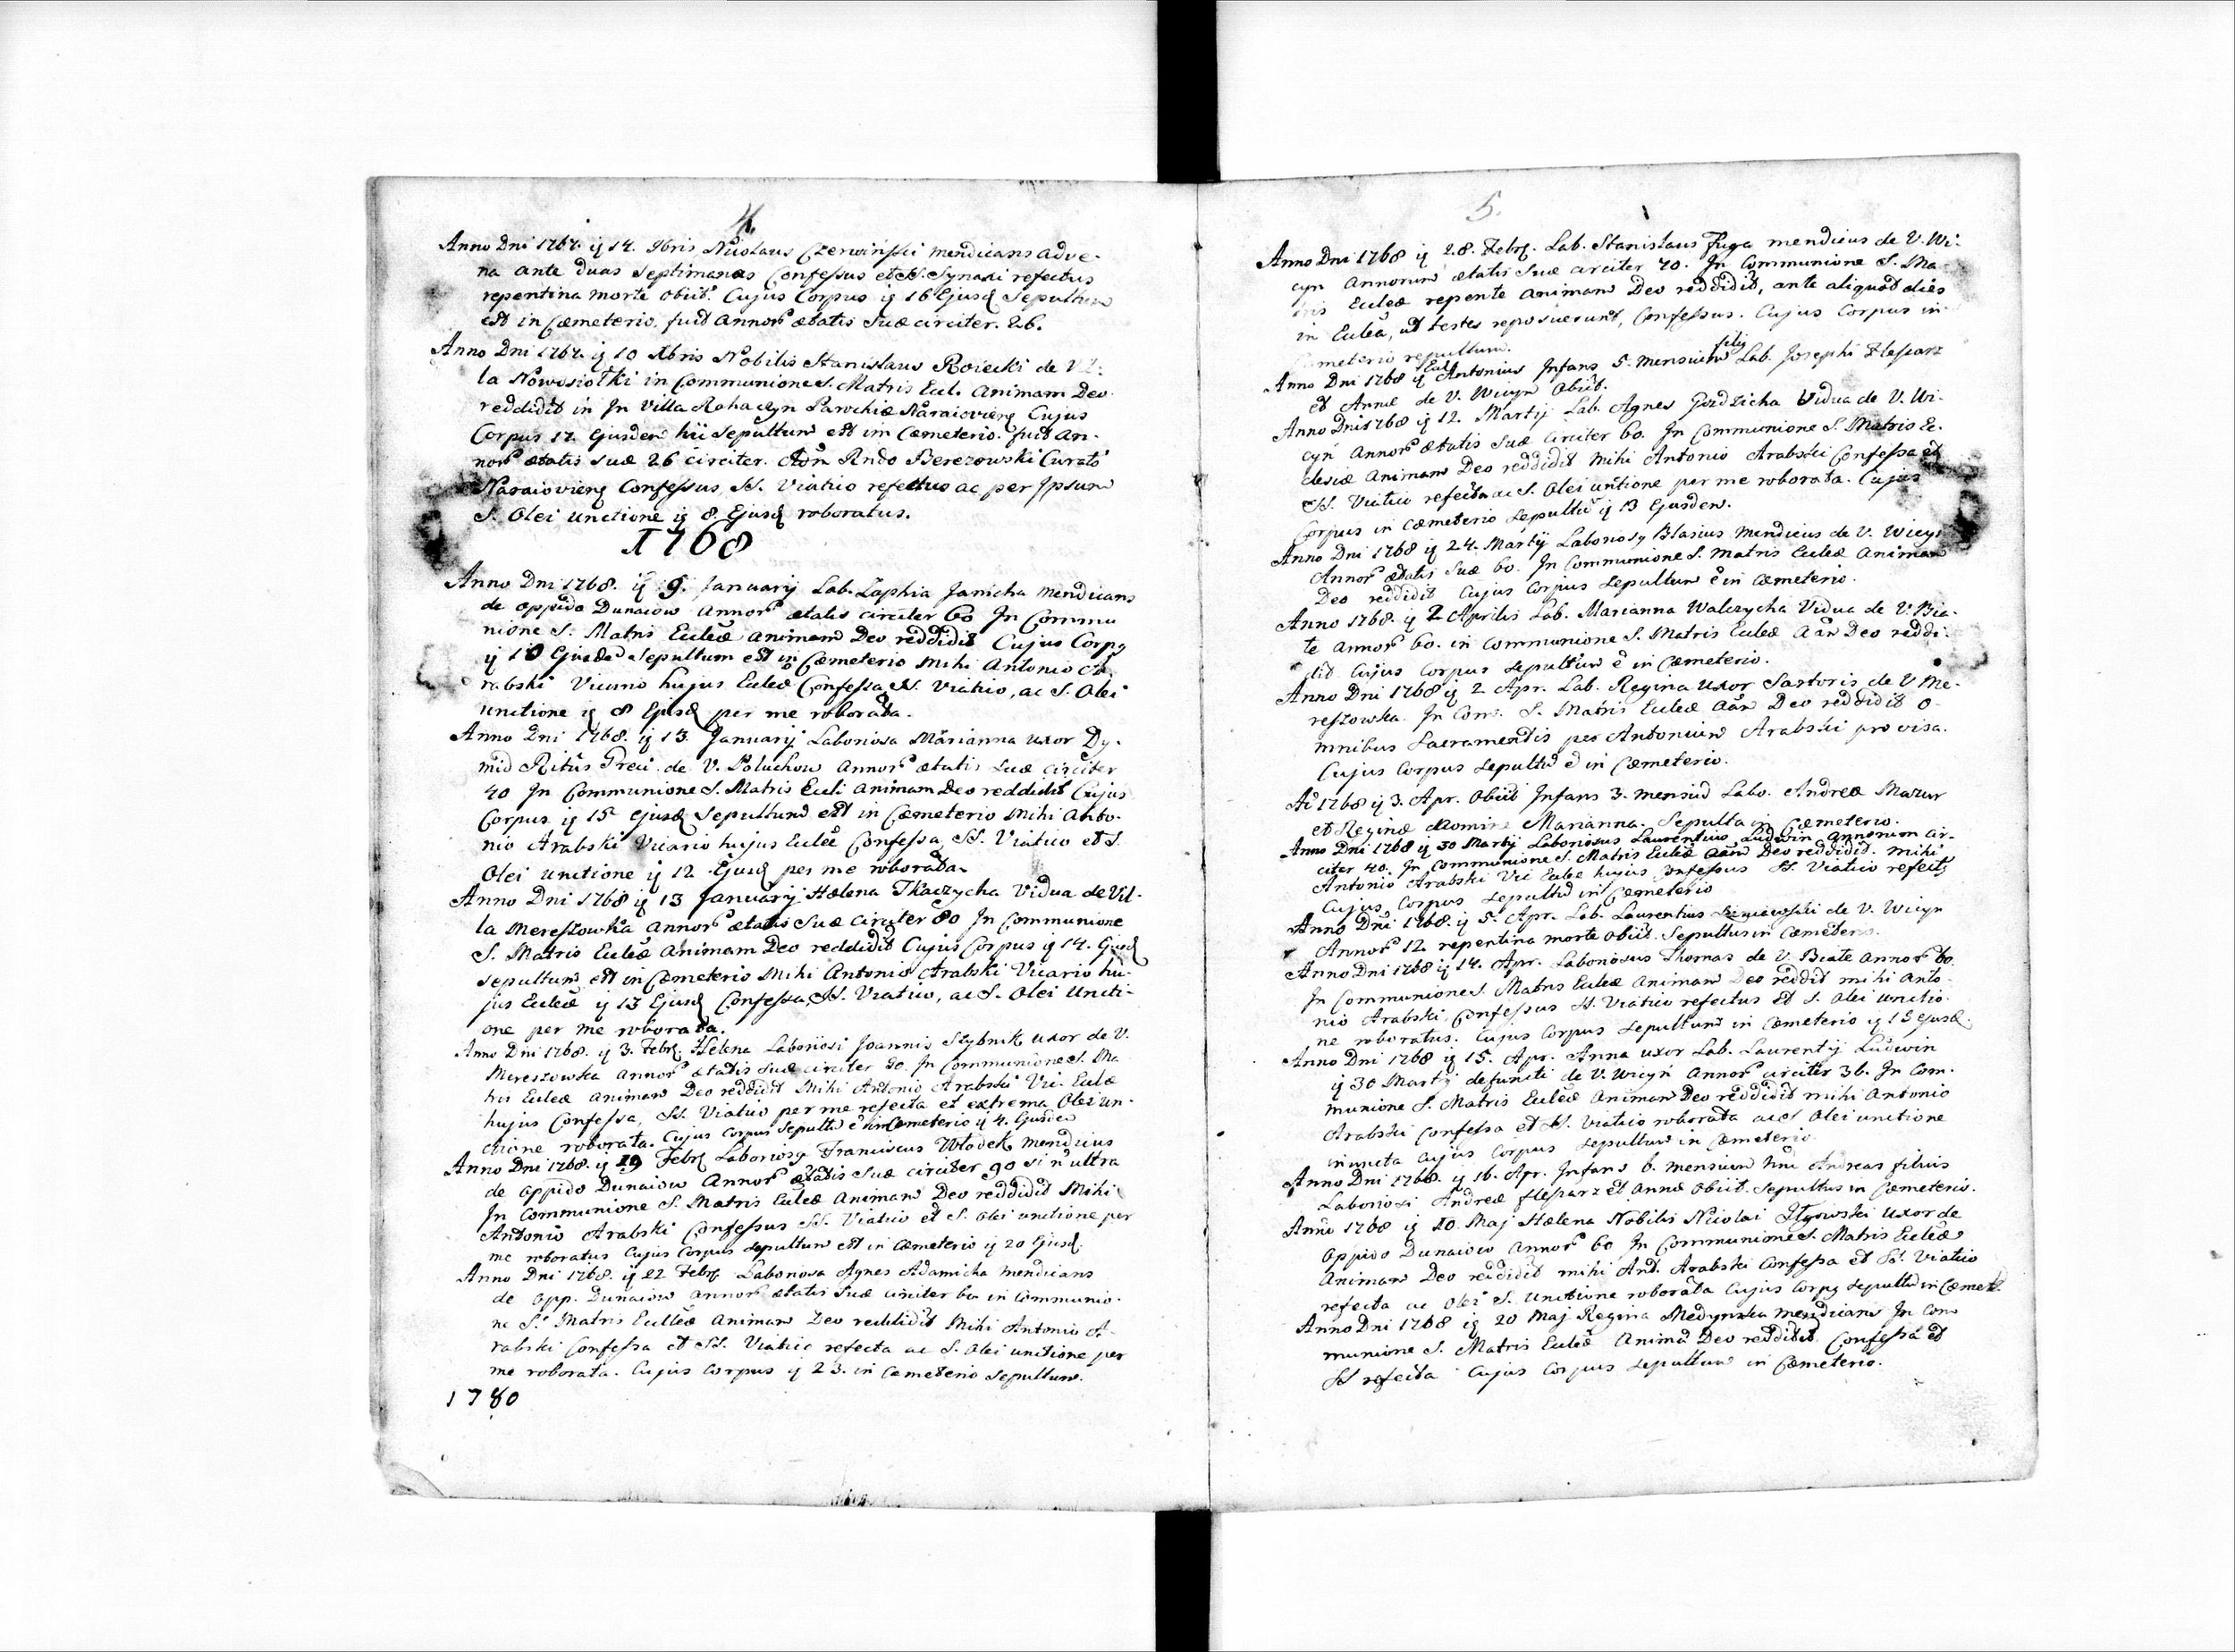 4.
Anno Dni 1767. ij 14. 9bris Nicolaus Czerwinski mendicans adve-
na ante duas Septimanas Confessus et SS. Synaxi refectus
repentina morte obiit. Cujus Corpus ij 16 Ejusd Sepultum
est in Cæmeterio. fuit Annor ætatis Suæ circiter. 26.
Anno Dni 1767. ij 10 Xbris Nobilis Stanislaus Roiecki de Vil-
la Nowosiołki in Communione S. Matris Eccl. Animam Deo
reddidit in Jn Villa Rohaczyn Parochiæ Naraioviens Cujus
Corpus 12. Ejusdem hic Sepultum est in Cæmeterio. fuit An-
nor ætatis suæ 26 circiter. Rndo Berezowski Curato
Naraioviens Confessus, SS. Viatico refectus ac per Jpsum
S. Olei unctione ij 8. Ejusd roboratus.
1768
Anno Dni 1768. ij 9. Januarij Lab. Zophia Janicha mendicans
de oppido Dunaiow Annor ætatis circiter 60 Jn Commu
nione S. Matris Eccleæ animam Deo reddidit Cujus Corpq
ij 10 Ejusdem Sepultum est in Cæmeterio Mihi Antonio A-
rabski Vicario hujus Eccleæ Confessa, SS. Viatico, ac S. Olei
unctione ij 8 Ejusd per me roborata.
Anno Dni 1768. ij 13 Januarij Laboriosa Marianna uxor Dy-
mid Ritûs Græci de V. Poluchow annor ætatis suæ circiter
40 Jn Communione S. Matris Eccli animam Deo reddidit Cujus
Corpus ij 15 ejusd Sepultum est in Cæmeterio Mihi Anto-
nio Arabski Vicario hujus Eccleæ Confessa, SS. Viatico et S.
Olei unctione ij 12 Ejusd per me roborata.
Anno Dni 1768 ij 13 Januarij Hælena Tkaczycha Vidua de Vil-
la Mereszowka annor ætatis Suæ circiter 80 Jn Communione
S. Matris Eccleæ Animam Deo reddidit Cujus Corpus ij 14. Ejusd
sepultum est in Cæmeterio Mihi Antonio Arabski Vicario hu-
jus Eccleæ ij 13 Ejusd Confessa, SS. Viatico, ac S. Olei Uncti-
one per me roborata.
Anno Dni 1768. ij 3. Febr. Helena Laboriosi Joannis Szybnik uxor de V.
Mereszowka annor ætatis suæ circiter 50. Jn Communione S. Ma
tris Eccleæ animam Deo reddidit Mihi Antonio Arabski Vic. Eccleæ
hujus Confessa, SS. Viatico per me refecta et extrema Olei un-
ctione roborata. Cujus Corpus Sepultū ē in Cæmeterio ij 4. Ejusdem
Anno Dni 1768. ij 19 Febr Laboriosq Franciscus Włodek mendicus
de oppido Dunaiow Annor ætatis Suæ circiter 90 si n ultra
Jn Communione S. Matris Eccleæ Animam Deo reddidit Mihi
Antonio Arabski Confessus SS. Viatico et S. Olei unctione per
me roboratus Cujus Corpus sepultum est in Cæmeterio ij 20 Ejusd.
Anno Dni 1768. ij 22 Febr Laboriosa Agnes Adamicha mendicans
de opp. Dunaiow annor ætatis suæ circiter in Communio-
ne S. Matris Eccleæ animam Deo reddidit Mihi Antonio A-
rabski Confessa et SS. Viatico refecta ac S. Olei unctione per
me roborata. Cujus corpus ij 23. in Cæmeterio sepultum.
1780
5.
Anno Dni 1768 ij 28. Febr. Lab. Stanislaus Fuga mendicus de V. Wi-
cyn Annorum ætatis suæ circiter 70. Jn Communione S. Ma
tris Eccleæ repente animam Deo reddidit, ante aliquot dies
in Ecclea, ut testes reposuerunt, Confessus. Cujus Corpus in
Cæmeterio sepultum.
Anno Dni 1768 ij Antonius Jnfans 5. mensium filij Lab. Josephi Flessarz
et Annæ de V. Wicyn obiit.
Anno Dni 1768 ij 12. Martij Lab. Agnes Gozdzicha Vidua de V. Wi-
cyn Annor ætatis suæ circiter 60. Jn Communione S. Matris Ec-
clesiæ Animam Deo reddidit Mihi Antonio Arabski Confessa et
SS. Viatico refecta ac S. Olei unctione per me roborata. Cujus
Corpus in Cæmeterio sepultū ij 13 Ejusdem.
Anno Dni 1768 ij 24. Martij Laboriosq Blasius mendicus de V. Wicyn
Annor ætatis suæ 60. Jn Communione S. Matris Eccleæ Animam
Deo reddidit Cujus Corpus sepultum ē in Cæmeterio.
Anno 1768. ij 2 Aprilis Lab. Marianna Walczycha Vidua de V. Bia-
te annor 60. in Communione S. Matris Eccleæ Aam Deo reddi-
dit Cujus Corpus sepultum ē in Cæmeterio.
Anno Dni 1768 ij 2 Apr. Lab. Regina uxor Sartoris de V. Me-
reszowka. Jn Com. S. Matris Eccleæ aam Deo reddidit o-
mnibus Sacramentis per Antonium Arabski provisa.
Cujus Corpus sepultū ē in Cæmeterio.
Ad 1768 ij 3. Apr. obiit Jnfans 3. mensiū Labo. Andreæ Mazur
et Reginæ Nomine Marianna. Sepulta in Cæmeterio.
Anno Dni 1768 ij 30 Martij Laboriosus Laurentius Ludwin annorum cir-
citer 40. Jn Communione S. Matris Eccleæ aam Deo reddidit. mihi
Antonio Arabski Vic Eccleæ hujus Confessus SS. Viatico refectq
Cujus Corpus sepultū in Cæmeterio
Anno Dni 1768. ij 5. Apr. Lab. Laurentius de V. Wicyn
Annor 12 repentina morte obiit. Sepultus in Cæmeterio.
Anno Dni 1768 ij 14. Apr. Laboriosus Thomas de V. Biate annor 60.
Jn Communione S. Matris Eccleæ animam Deo reddit mihi Anto-
nio Arabski, Confessus SS. Viatico refectus et S. Olei unctio-
ne roboratus. Cujus Corpus sepultum in Cæmeterio ij 15 Ejusd.
Anno Dni 1768 ij 15. Apr. Anna uxor Lab. Laurentij Ludwin
ij 30 Martij defuncti de V. Wicyn annor circiter 36. Jn Com-
munione S. Matris Eccleæ Animam Deo reddidit mihi Antonio
Arabski Confessa et SS. Viatico roborata ac S Olei unctione
inuncta Cujus Corpus sepultum in Cæmeterio.
Anno Dni 1768. ij 16. Apr. Jnfans 6. mensium Andreas filius
Laboriosi Andreæ flessarz et Annæ obiit. Sepultus in Cæmeterio.
Anno 1768 ij 10 Maj Hælena Nobilis Nicolai uxor de
oppido Dunaiow annor 60 Jn Communione S. Matris Eccleæ
Animam Deo reddidit mihi Ant. Arabski Confessa et SS. Viatico
refecta ac Olei S. unctione roborata Cujus Corpq sepultū in Cæmet.
Anno Dni 1768 ij 20 Maj Regina Medynska mendicans Jn Com
munione S. Matris Eccleæ Animā Deo reddidit Confessa et
SS refecta Cujus Corpus sepultum in Cæmeterio.